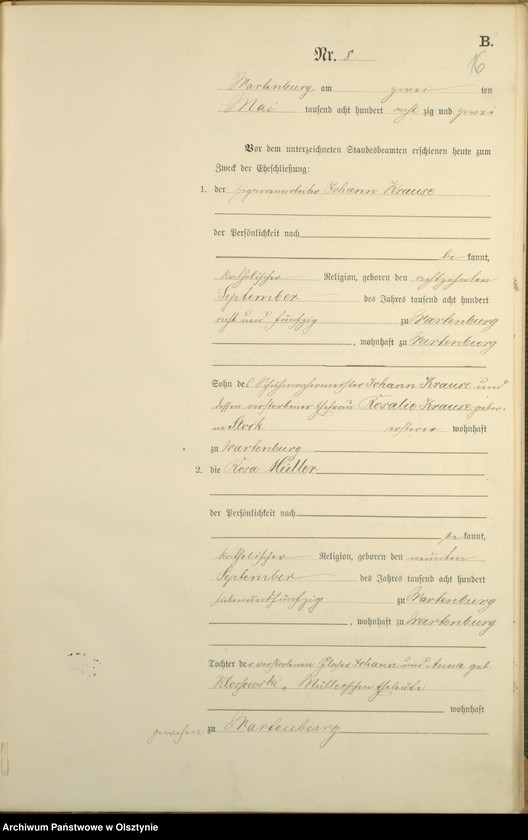 B.
Nr. 8.
16
Wartenburg, am zwei ten
Mai tausend acht hundert acht zig und zwei
Vor dem unterzeichneten Standesbeamten erschienen heute zum
Zweck der Eheschließung:
1. der Zigarrenarbeiter Johann Krause
der Persönlichkeit nach
be kannt,
katholischer Religion, geboren den achtzehnten
September des Jahres tausend acht hundert
acht und fünfzig zu Wartenburg
, wohnhaft zu Wartenburg
Sohn des Schuhmachermeister Johann Krause und
dessen verstorbener Ehefrau Rosalie Krause gebor-
ne Stock ersterer wohnhaft
zu Wartenburg
2. die Rosa Müller
der Persönlichkeit nach
be kannt,
katholischer Religion, geboren den neunten
September des Jahres tausend acht hundert
siebenundfünfzig zu Wartenburg
, wohnhaft zu Wartenburg
Tochter der verstorbenen Johann und Anna geb.
Müllerschen Eheleute
wohnhaft
gewesen zu Wartenburg
Archiwum Państwowe w Olsztynie